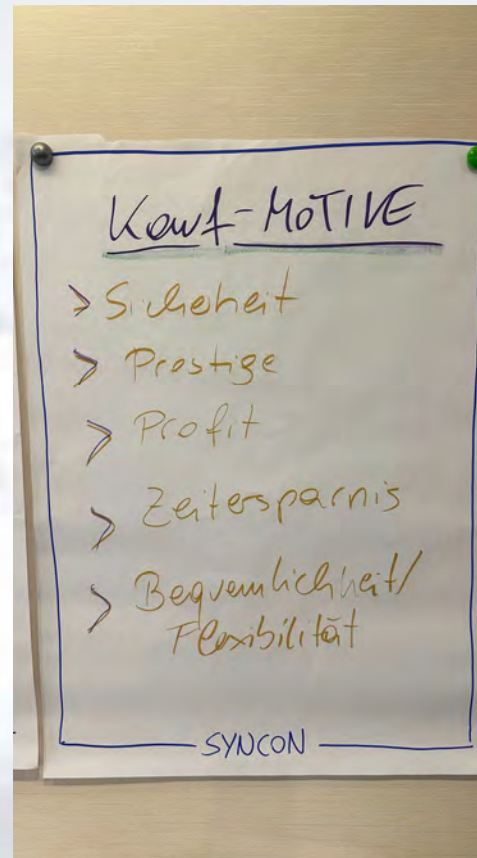 Kauf-MOTIVE
> Sicherheit
> Prestige
> Profit
> Zeitersparnis
> Bequemlichkeit/
Flexibilität
SYNCON